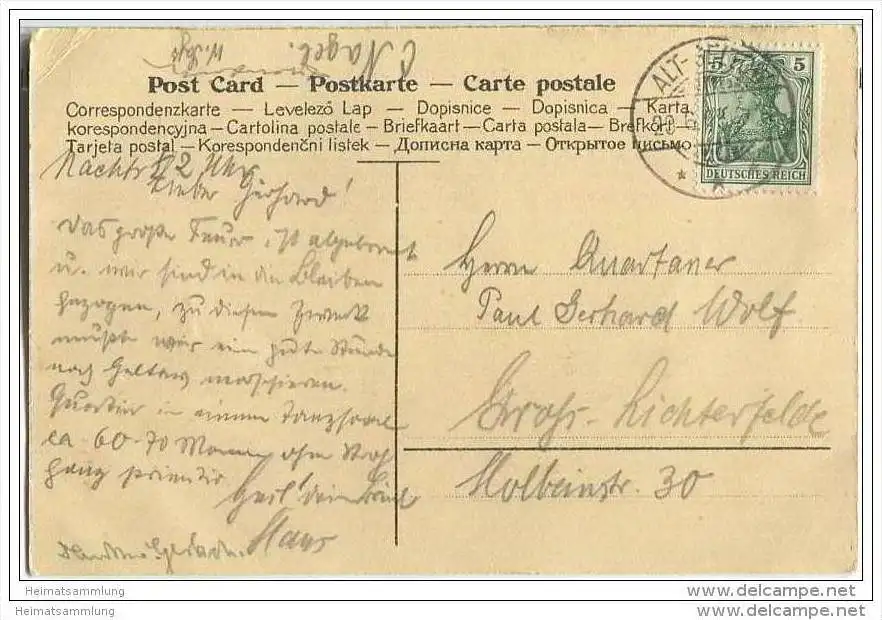 C. Nagel.
Post Card — Postkarte — Carte postale
Correspondenzkarte — Levelező Lap — Dopisnice — Dopisnica — Karta
korespondencyjna — Cartolina postale — Briefkaart — Carta postala — Brefkort —
Tarjeta postal — Korespondenčni listek — Дописна карта — Открытое письмо
ALT-
5 5
DEUTSCHES REICH
Nachts 2 Uhr
Lieber Gerhard!
Das große Feuer ist abgebrannt
u. wir sind in die Bleiben
gezogen, zu diesem Zweck
mußte wir eine gute Stunde
nach Geltow marschieren.
Quartier in einem Tanzsaal
ca 60-70 Mann ohne Stroh
ganz primitiv
Heil! dein Freund
Hans
Herrn Quartaner
Paul Gerhard Wolf
Gross-Lichterfelde
Holbeinstr. 30
Heimatsammlung
Heimatsammlung
www.delcampe.net
www.delcampe.net